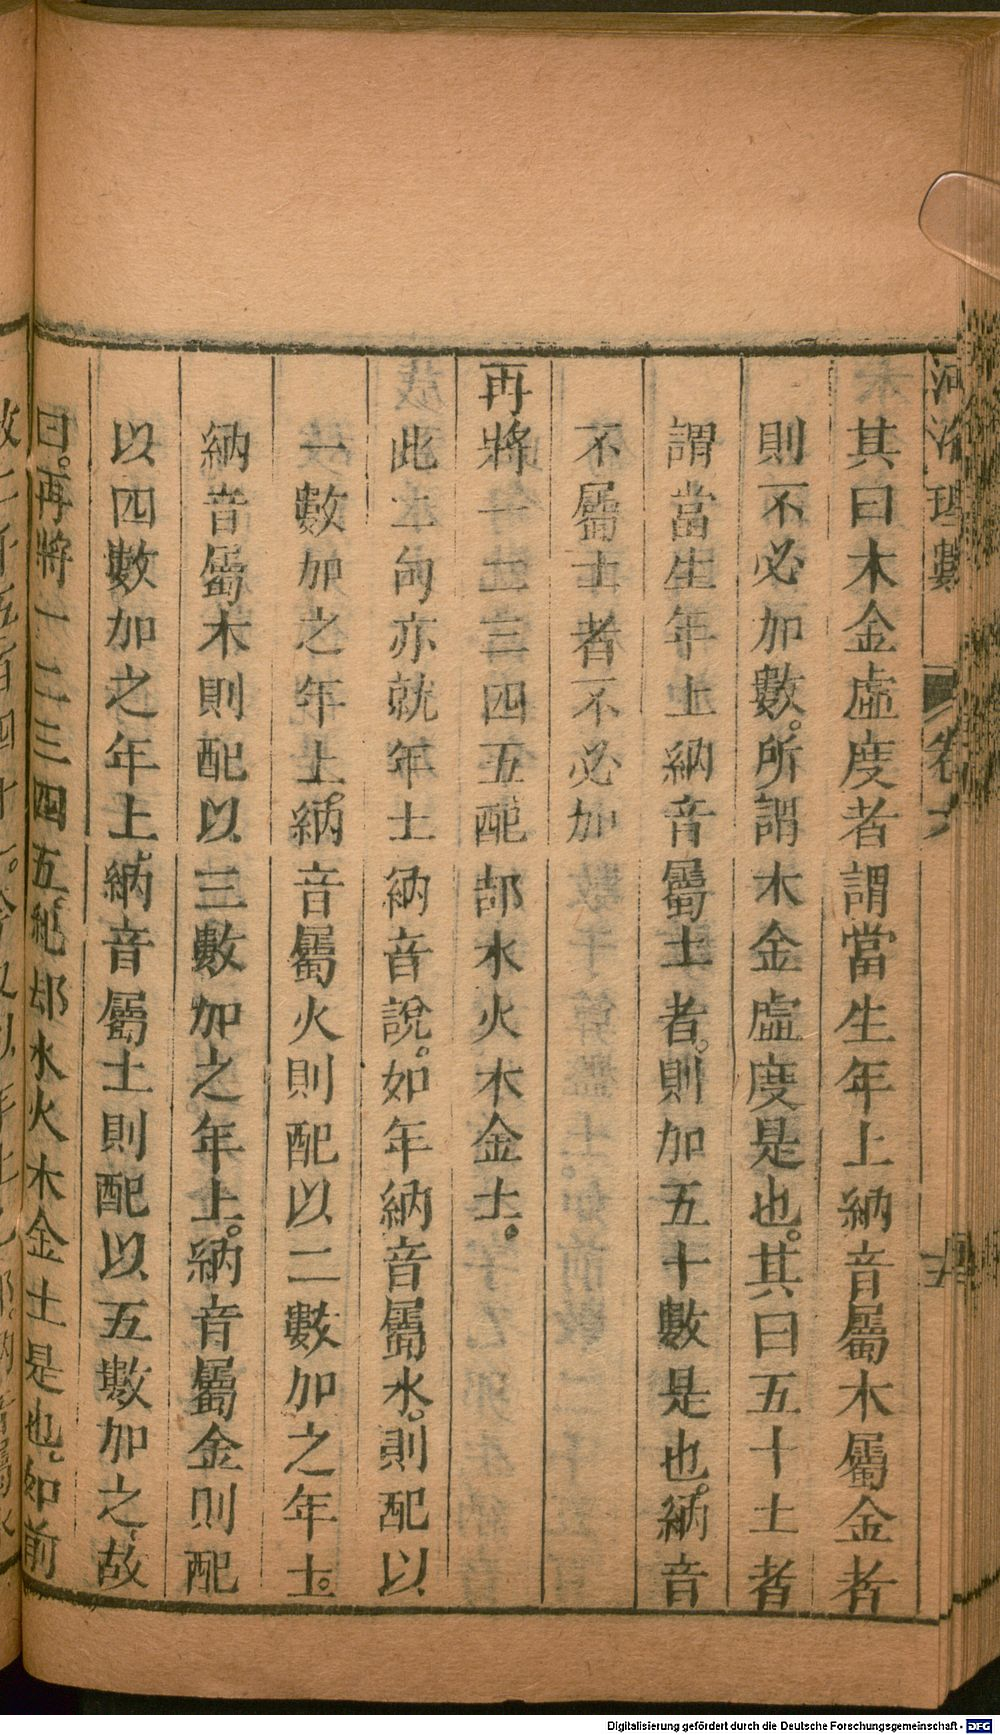 河洛理數 卷六
其曰木金虛度者謂當生年上納音屬木屬金者
則不必加數。所謂木金虛度是也。其曰五十土者
謂當生年上納音屬土者。則加五十數是也。納音
不屬土者不必加
再將一二三四五配部水火木金土。
此二句亦就年上納音說。如年納音屬水。則配以
一數加之年上。納音屬火則配以二數加之年上。
納音屬木則配以三數加之年上。納音屬金則配
以四數加之年上。納音屬土則配以五數加之故
曰。再將一二三四五。配却水火木金土是也。如前
Digitalisierung gefördert durch die Deutsche Forschungsgemeinschaft - DFG